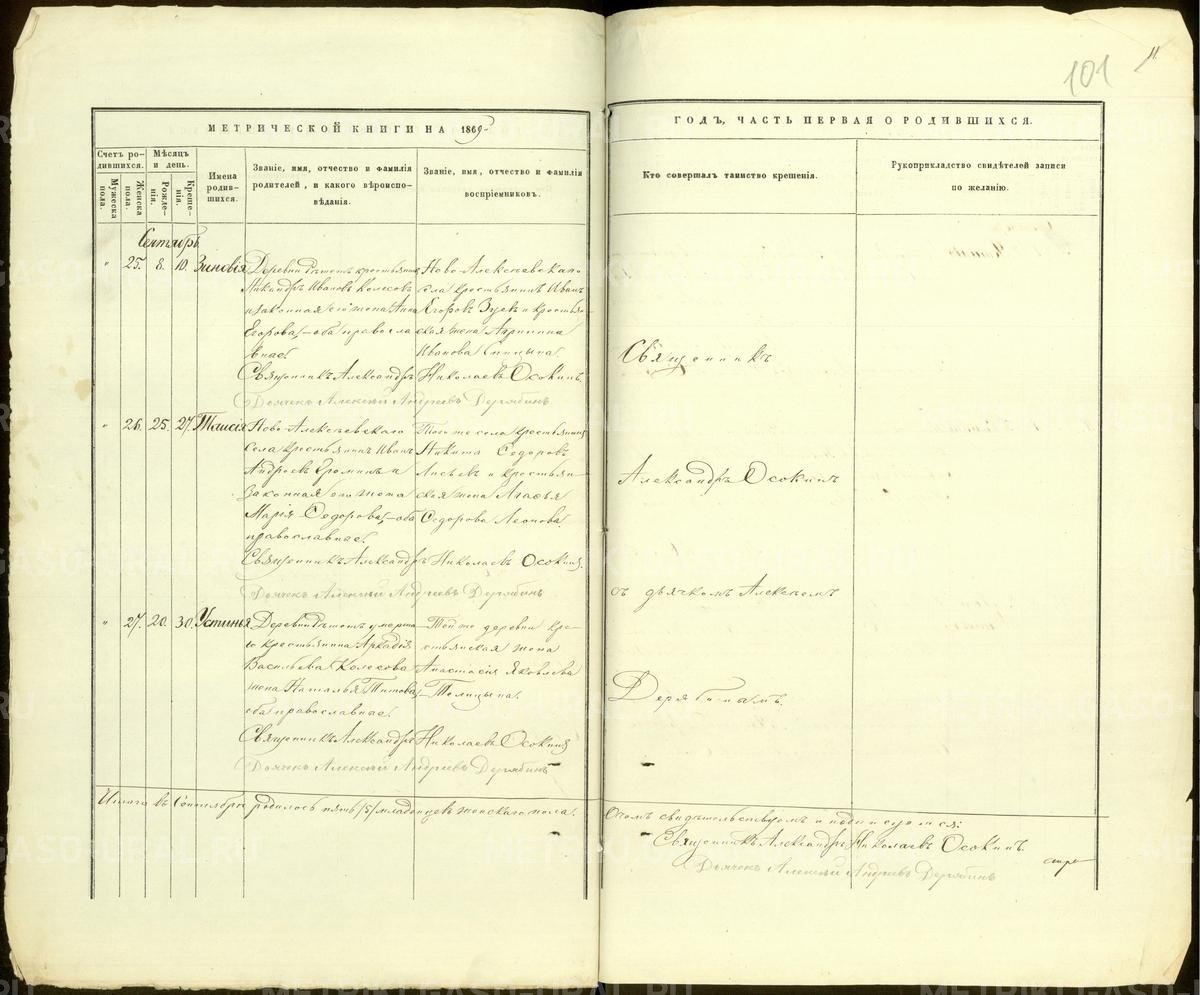 101
11
МЕТРИЧЕСКОЙ КНИГИ НА 1869
ГОДЪ, ЧАСТЬ ПЕРВАЯ О РОДИВШИХСЯ.
Счетъ родившихся.
Мужеска пола.
Женска пола.
Мѣсяцъ и день.
Рожденія.
Крещенія.
Имена родившихся.
Званіе, имя, отчество и фамилія
родителей, и какого вѣроиспо-
вѣданія.
Званіе, имя, отчество и фамилія
воспріемниковъ.
Кто совершалъ таинство крещенія.
Рукоприкладство свидѣтелей записи
по желанію.
Сентябрь
" 25. 8. 10. Зиновія
Деревни крестьянинъ
Никандръ Ивановъ Колесовъ
и законная его жена Анна
Егорова, оба правосла
вные.
Ново-Алексѣевскаго
села крестьянинъ Иванъ
Егоровъ Зуевъ и крестьян-
ская жена
Иванова
Священникъ Александръ Николаевъ Осокинъ.
Дьячекъ Алексѣй Андреевъ Дерябинъ
" 26. 25. 27. Таисія
Ново-Алексѣевскаго
села крестьянинъ Иванъ
Андреевъ и
законная его жена
Марія Ѳедорова, оба
православные.
Того же села крестьянинъ
Никита Ѳедоровъ
и крестьян-
ская жена Агафья
Ѳедорова Леонова
Священникъ Александръ Николаевъ Осокинъ.
Дьячекъ Алексѣй Андреевъ Дерябинъ
" 27. 20. 30. Устинья
Деревни умерша-
го крестьянина Аркадія
Васильева Колесова
жена Наталья Титова,
оба православные.
Той же деревни кре-
стьянская жена
Анастасія Яковлева
Священникъ Александръ Николаевъ Осокинъ
Дьячекъ Алексѣй Андреевъ Дерябинъ
Священникъ
Александръ Осокинъ
съ дьячкомъ Алексѣемъ
Дерябинымъ.
Итого въ Сентябрѣ родилось пять /5/ младенцевъ женскаго пола.
О чемъ свидѣтельствуемъ и подписуемся:
Священникъ Александръ Николаевъ Осокинъ.
Дьячекъ Алексѣй Андреевъ Дерябинъ